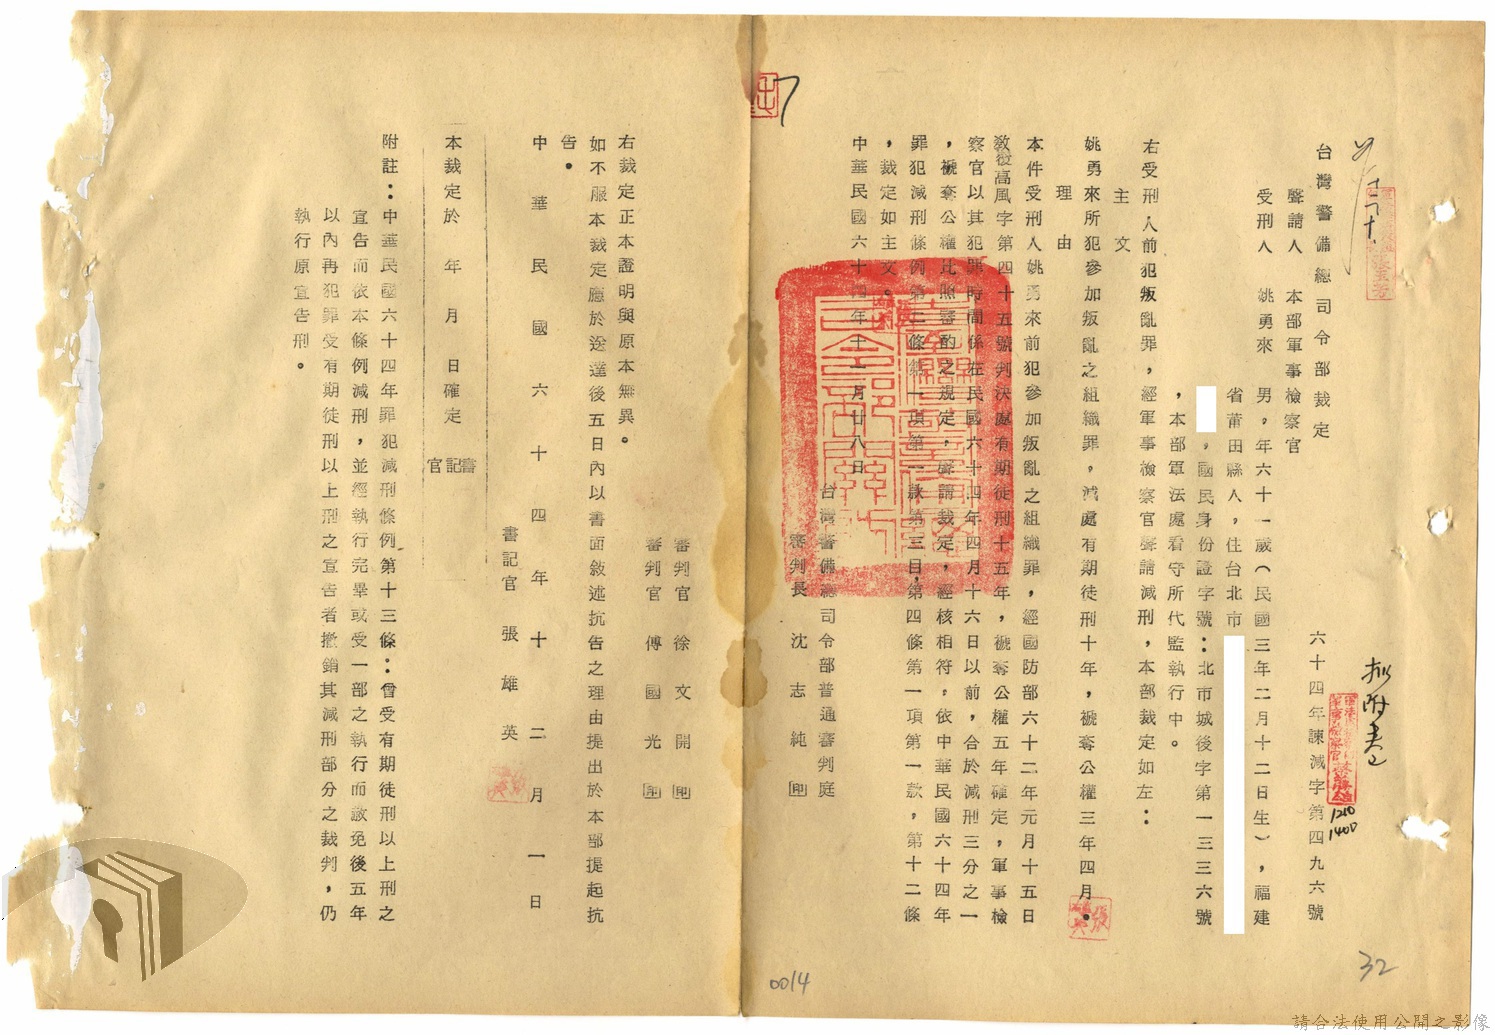 台灣警備總司令部裁定
六十四年諫減字第四九六號
聲請人　本部軍事檢察官
受刑人　姚勇來　男，年六十一歲（民國三年二月十二日生），福建
省莆田縣人，住台北市
，國民身份證字號：北市城後字第一三三六號
，本部軍法處看守所代監執行中。
右受刑人前犯叛亂罪，經軍事檢察官聲請減刑，本部裁定如左：
主文
姚勇來所犯參加叛亂之組織罪，減處有期徒刑十年，褫奪公權三年四月。
理由
本件受刑人姚勇來前犯參加叛亂之組織罪，經國防部六十二年元月十五日
教復高風字第四十五號判決處有期徒刑十五年，褫奪公權五年確定，軍事檢
察官以其犯罪時間係在民國六十四年四月十六日以前，合於減刑三分之一
，褫奪公權比照審酌之規定，聲請裁定，經核相符。依中華民國六十四年
罪犯減刑條例第二條第一項第一款第三目，第四條第一項第一款，第十二條
，裁定如主文。
中華民國六十四年十一月廿八日
台灣警備總司令部普通審判庭
審判長　沈志純　印
審判官　徐文開　印
審判官　傅國光　印
右裁定正本證明與原本無異。
如不服本裁定應於送達後五日內以書面敘述抗告之理由提出於本部提起抗
告。
中華民國六十四年十二月一日
書記官　張雄英
本裁定於　年　月　日確定
書記官
附註：中華民國六十四年罪犯減刑條例第十三條：曾受有期徒刑以上刑之
宣告而依本條例減刑，並經執行完畢或受一部之執行而赦免後五年
以內再犯罪受有期徒刑以上刑之宣告者撤銷其減刑部分之裁判，仍
執行原宣告刑。
1210
1400
32
0014
請合法使用公開之影像